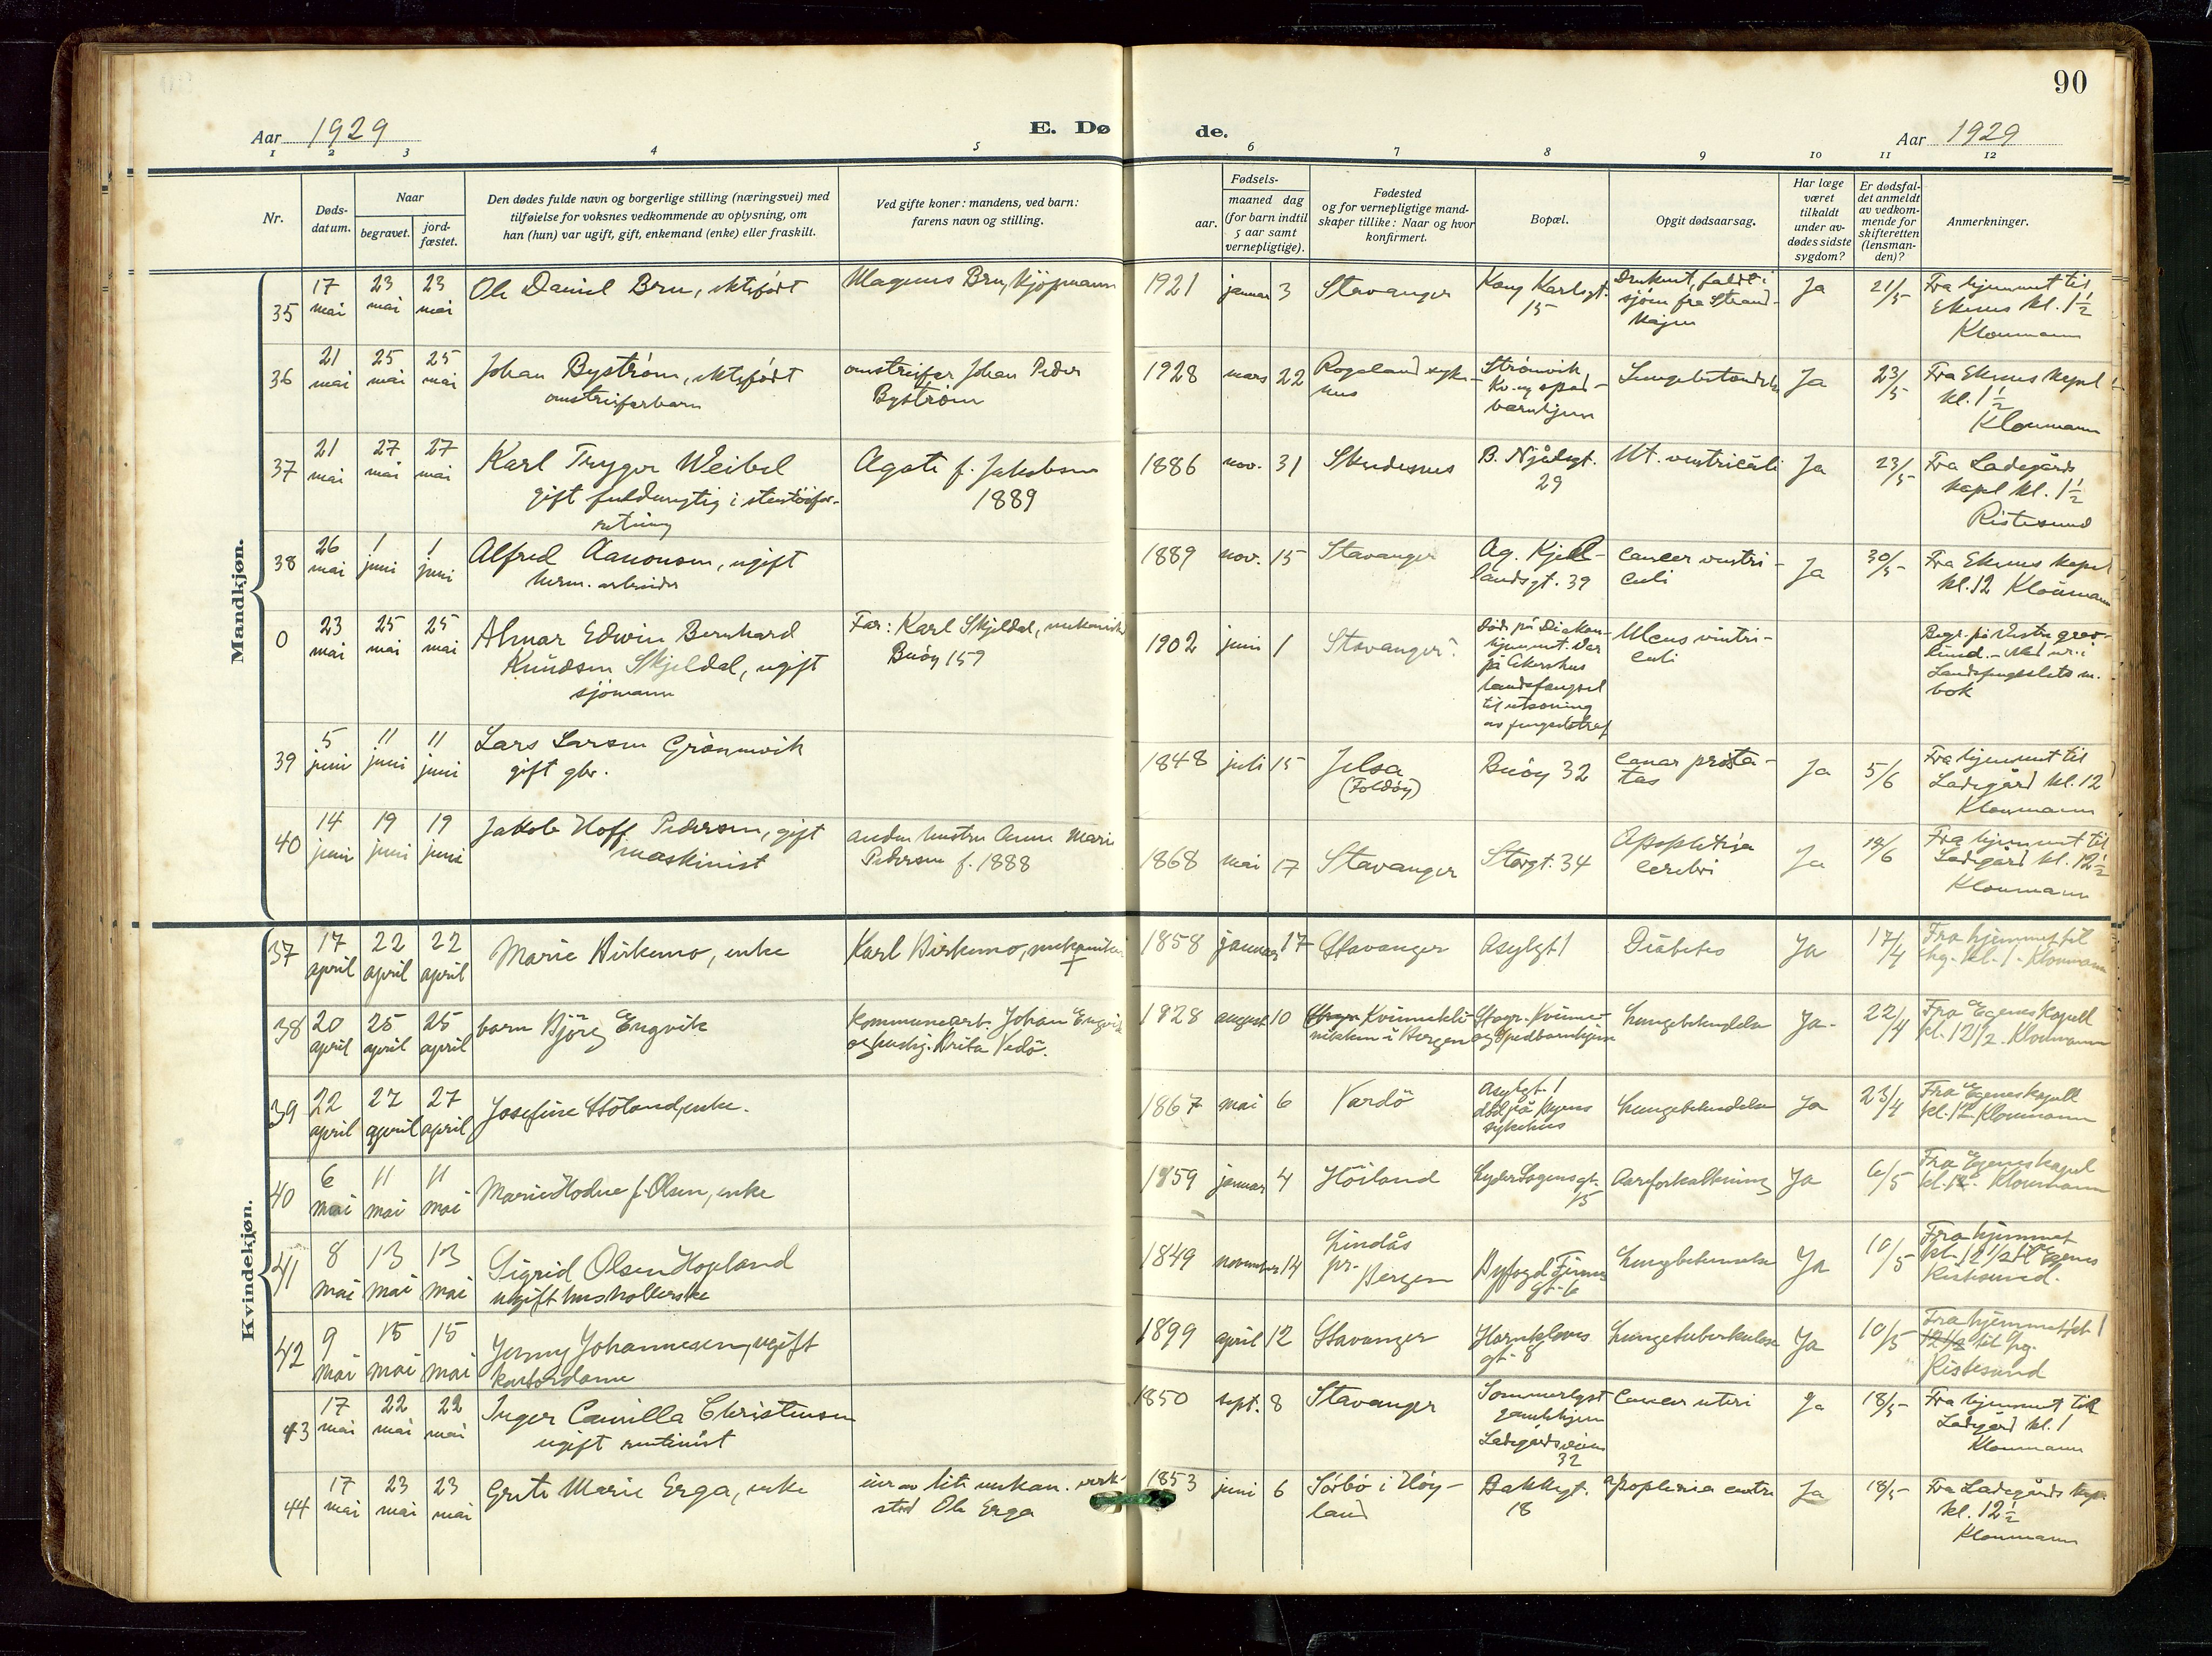 90
Aar 1929
E. Dø de.
Aar 1929
1 2 3 4 5 6 7 8 9 10 11 12
Nr.
Døds-
datum.
Naar
begravet.
jord-
fæstet.
Den dødes fulde navn og borgerlige stilling (næringsvei) med
tilføielse for voksnes vedkommende av oplysning, om
han (hun) var ugift, gift, enkemand (enke) eller fraskilt.
Ved gifte koner: mandens, ved barn:
farens navn og stilling.
Fødsels-
aar.
maaned dag
(for barn indtil
5 aar samt
vernepligtige).
Fødested
og for vernepligtige mand-
skaper tillike: Naar og hvor
konfirmert.
Bopæl.
Opgit dødsaarsag.
Har læge
været
tilkaldt
under av-
dødes sidste
sygdom?
Er dødsfal-
det anmeldt
av vedkom-
mende for
skifteretten
(lensman-
den)?
Anmerkninger.
Mandkjøn.
35
17 mai
23 mai
23 mai
Ole Daniel Bru, ektefødt
Magnus Bru, kjøpmann
1921 januar 3
Stavanger
Kong Karlsgt.
15
Druknet, faldt i
sjøen fra Strand-
kajen
Ja
21/5
Fra hjemmet til
Ekenes kl. 1½
Kloumann
36
21 mai
25 mai
25 mai
Johan Byström, ektefødt
omstreiferbarn
omstreifer Johan Peder
Byström
1928 mars 22
Rogaland syke-
hus
Strömvik
kv. og sped-
barnhjem
Ja
23/5
Fra Ekenes kapel
kl. 1½
Kloumann
37
21 mai
27 mai
27 mai
Karl Trygve Weibel
gift fuldmægtig i stentöifor-
retning
Agate f. Jakobsen
1889
1886 nov. 31
Skudesnes
B. Njålsgt.
29
Ulc. ventriculi
Ja
23/5
Fra Ladegårds
kapel kl. 1½
Ristesund
38
26 mai
1 juni
1 juni
Alfred Aanonsen, ugift
herm. arbeider
1889 nov. 15
Stavanger
Ag. Kjel-
landsgt. 39
cancer ventri-
culi
Ja
30/5
Fra Ekenes kapel
kl. 12 Kloumann
0
23 mai
25 mai
25 mai
Almar Edwin Bernhard
Knudsen Skjeldal, ugift
sjömann
Far: Karl Skjeldal, mekaniker
Buöy 159
1902 juni 1
Stavanger.
Död på Diakon-
hjemmet. Var
på Akershus
landsfængsel
til utsoning
av fengselstraf
Ulcus ventri-
culi
Begr. på Vestre grav-
lund. - Med nr. i
Landsfengselets m.
bok
39
5 juni
11 juni
11 juni
Lars Larsen Grönnevik
gift gbr.
1848 juli 15
Jelsa
(Foldöy)
Buöy 32
cancer prosta-
tas
Ja
5/6
Fra hjemmet til
Ladegård kl. 12
Kloumann
40
14 juni
19 juni
19 juni
Jakob Hoff Pedersen, gift
maskinist
anden hustru Anne Marie
Pedersen f. 1888
1868 mai 17
Stavanger
Storgt. 34
Apopleksia
cerebri
Ja
18/6
Fra hjemmet til
Ladegård kl. 12½
Kloumann
Kvindekjøn.
37
17 april
22 april
22 april
Marie Birkemo, enke
Karl Birkemo, mekaniker
†
1858 januar 17
Stavanger
Asylgt 1
Diabetes
Ja
17/4
Fra hjemmet til
kl. 1. Kloumann
38
20 april
25 april
25 april
barn Björg Engvik
kommunearb. Johan Engvik
og hustr. Brita Vedö.
1928 august 10
Kvinnekli-
nikken i Bergen
Stvgr. Kvinne-
og Spedbarnhjem
Lungebetendelse
Ja.
22/4
Fra Egenes Kapell
kl. 12 1/2. Kloumann
39
22 april
27 april
27 april
Josefine Stöland, enke.
1867 mai 6
Vardö
Asylgt. 1
död på Byens
sykehus
Lungebetendelse
Ja
23/4
Fra Egenes kapell
kl. 12 Kloumann
40
6 mai
11 mai
11 mai
Marie Hodne f. Olsen, enke
1859 januar 4
Höiland
Lyder Sagens gt.
15
Aareforkalkning
Ja
6/5
Fra Egenes kapel
kl. 12. Kloumann
41
8 mai
13 mai
13 mai
Sigrid Olsen Hopland
ugift husholderske
1849 november 14
Lindås
pr.
Bergen
Byfogd Finnes
gt. 6
Lungebetennelse
Ja
10/5
Fra hjemmet
kl. 12 1/2 til Egenes
Ristesund.
42
9 mai
15 mai
15 mai
Jenny Johannesen, ugift
kontordame
1899 april 12
Stavanger
Hornkloves
gt. 8
Lungetuberkulose
Ja
10/5
Fra hjemmet kl 1
12 1/2 til
Ristesund
43
17 mai
22 mai
22 mai
Inger Camilla Christensen
ugift rentenist
1850 sept. 8
Stavanger
Sommerlyst
gamlehjem
Ladegårdsveien
32
Cancer uteri
Ja
18/5
Fra hjemmet til
Ladegård kl. 1
Kloumann
44
17 mai
23 mai
23 mai
Grete Marie Erga, enke
eier av lite mekan. verk-
sted Ole Erga
1853 juni 6
Sörbö i Höy-
land
Bakkegt.
18
apoplexia
Ja
18/5
Fra Ladegårds kapel
kl. 12½
Kloumann